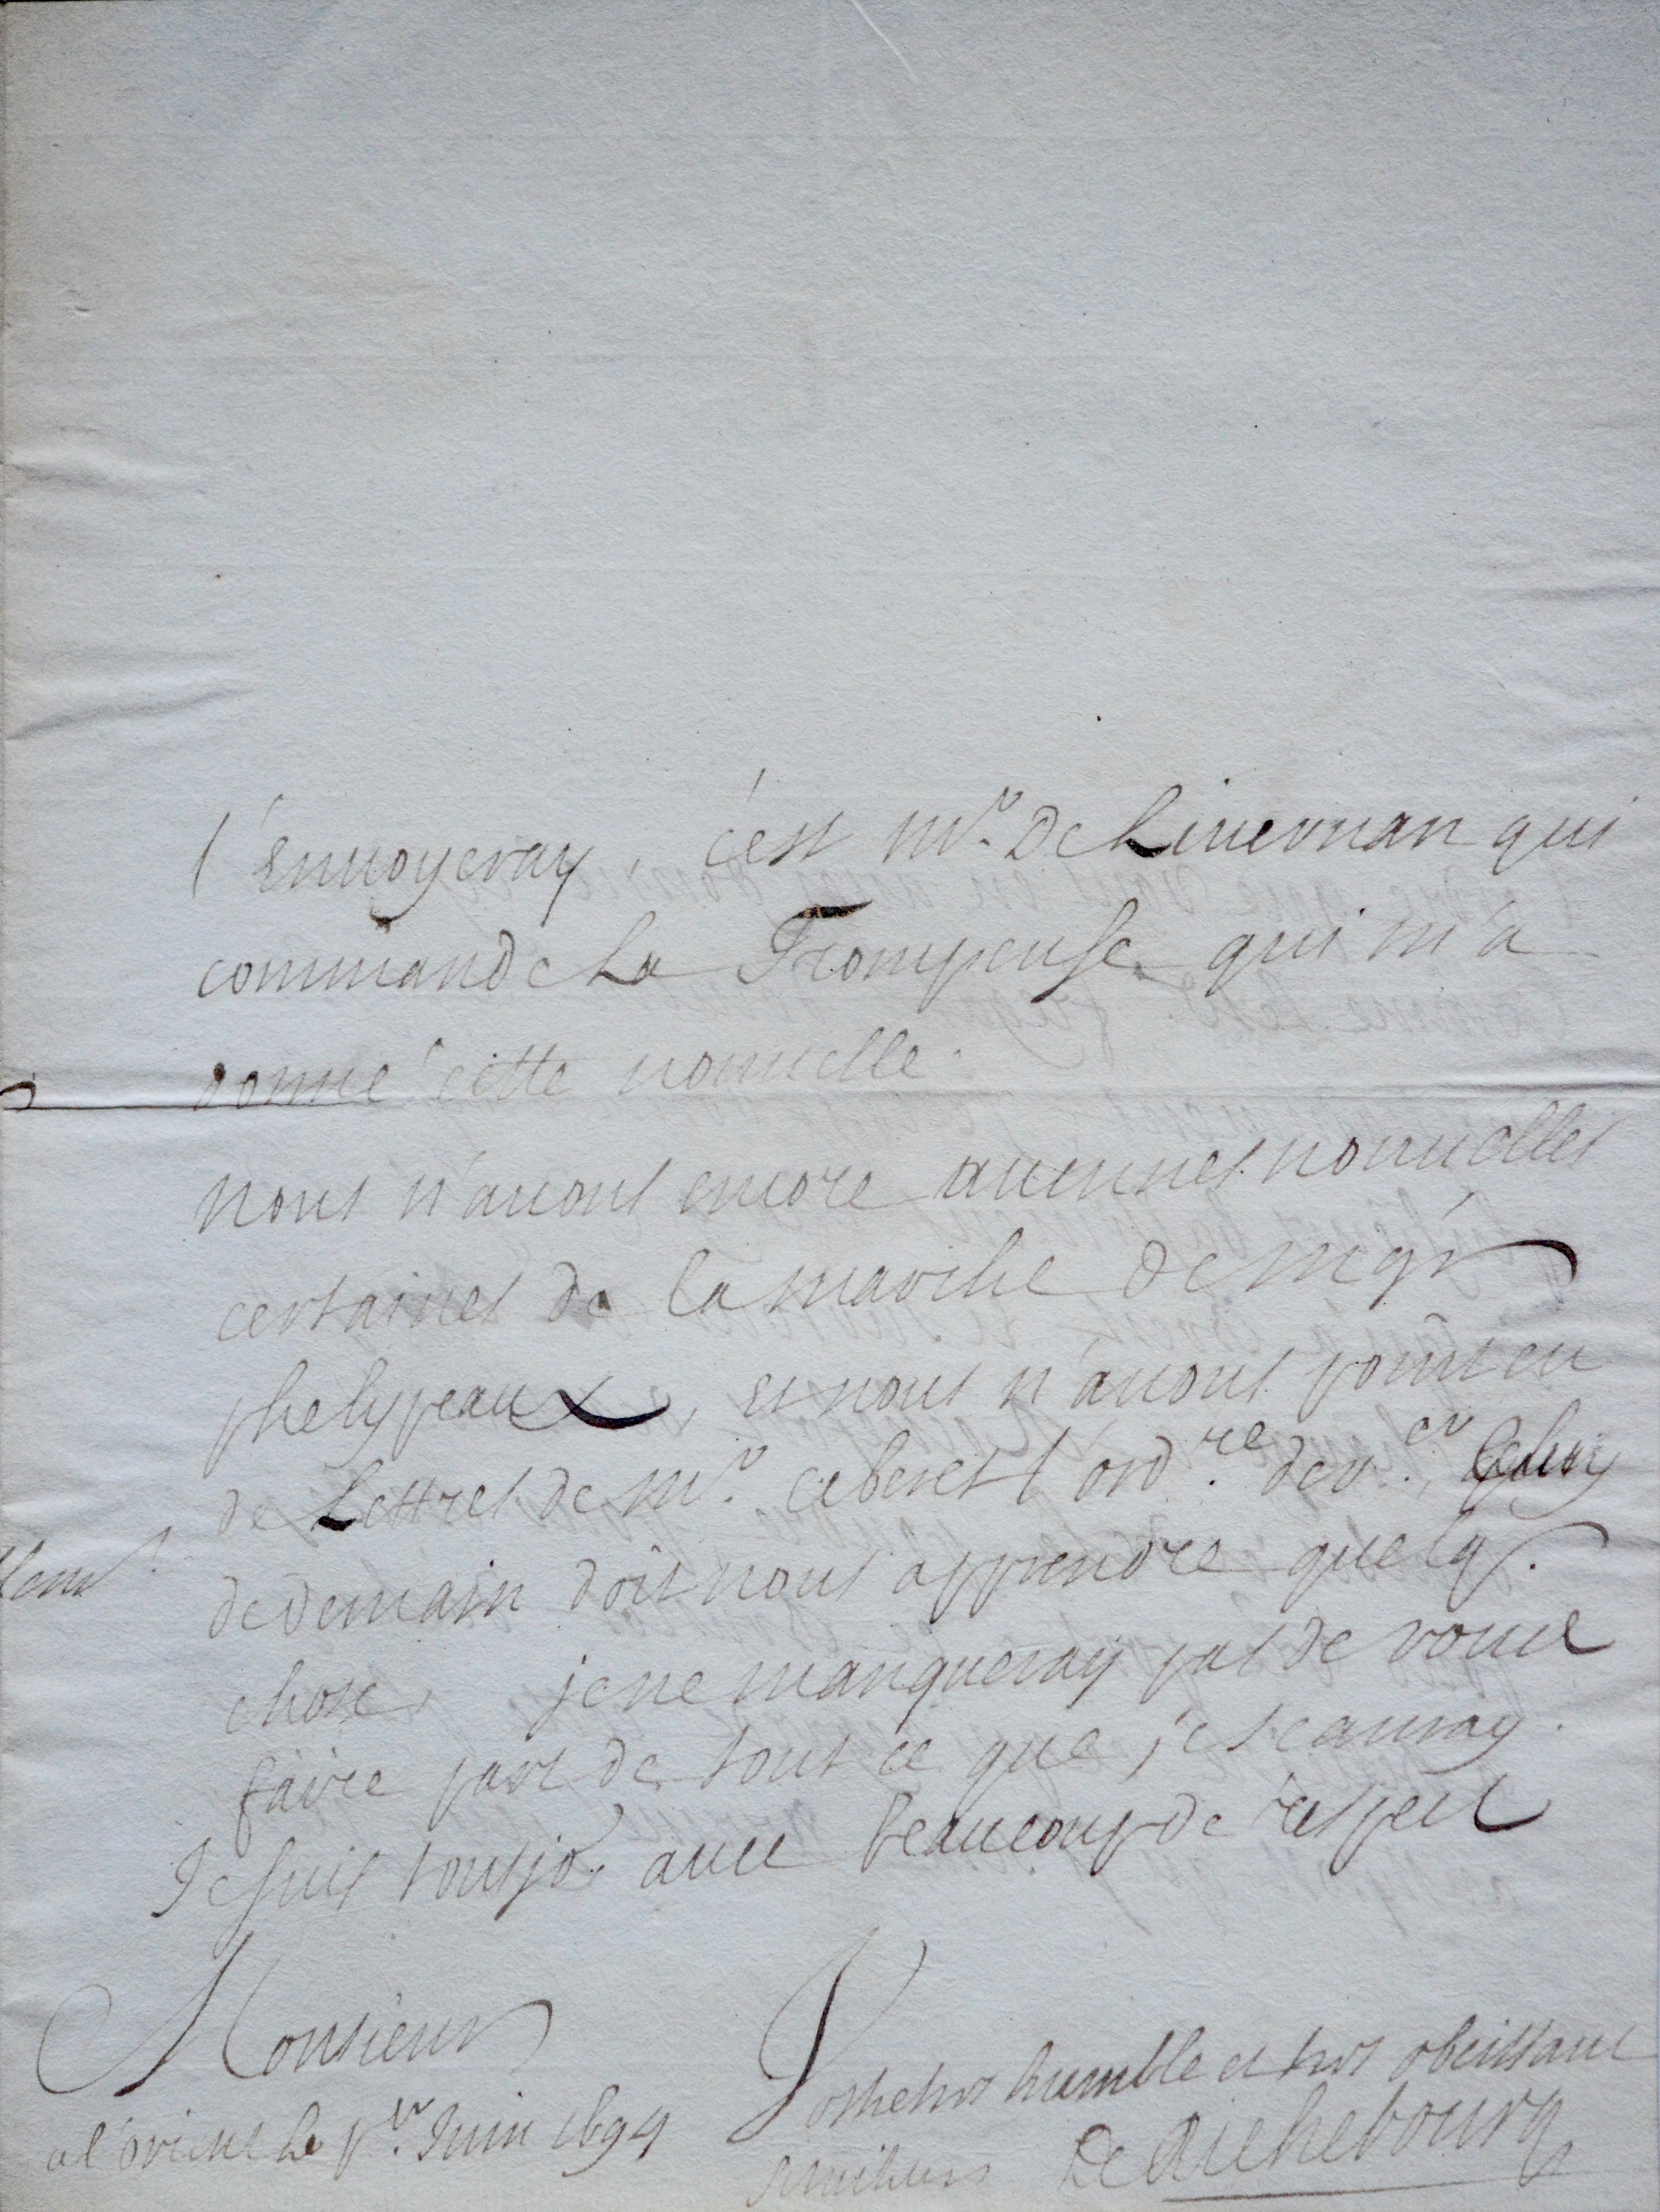 l'Enuoyeray, c'est Mr. De Liuernan qui
commande La Trompeuse qui m'a
donné cette nouuelle.
nous n'auons encore aucunes nouuelles
certaines de la marche de mgr
phelypeaux, et nous n'auons point eu
de Lettres de Mr. ceberet l'ordre. der.er
de demain doit nous apprendre quelq.
chose, je ne manqueray pas de vous
faire part de tout ce que je scauray.
Je suis tousjo. auec beaucoup de respect
Monsieur
Vostre tres humble et tres obeissant
seruiteur De Richebourg
a l'orient le pr. Juin 1694